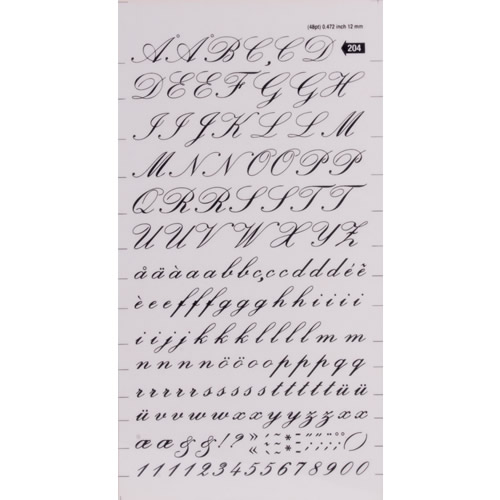 (48pt) 0.472 inch 12 mm
204
A Å B C Ç D
D E E F G G H
I I J K L L M
M N N O O P P
Q R R S S T T
U U V W X Y Z
å ä à a a b b ç c c d d d é ê
è e e f f f g g g h h i i i i
i i j j k k k l l l l m m
n n n n n ö ö o o p p p q q
r r r r r s s s s s t t t t t ü ü
ü v v w w x x y y z z x x
æ æ & & ! ?
1 1 1 1 2 3 4 5 5 6 7 8 9 0 0